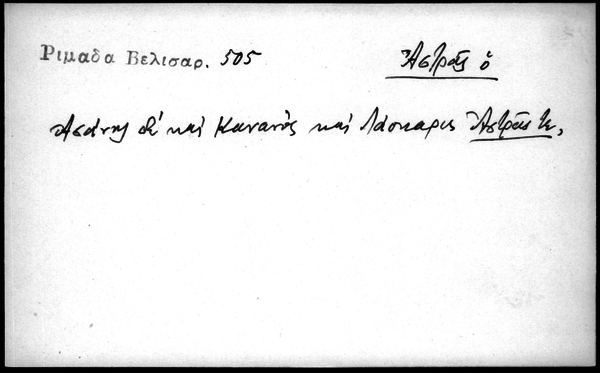 Ριμαδα Βελισαρ. 505
Ἀστρᾶς ὁ
Ασάνης δὲ καὶ Κανανὸς καὶ Λάσκαρις Ἀστρᾶς τε,